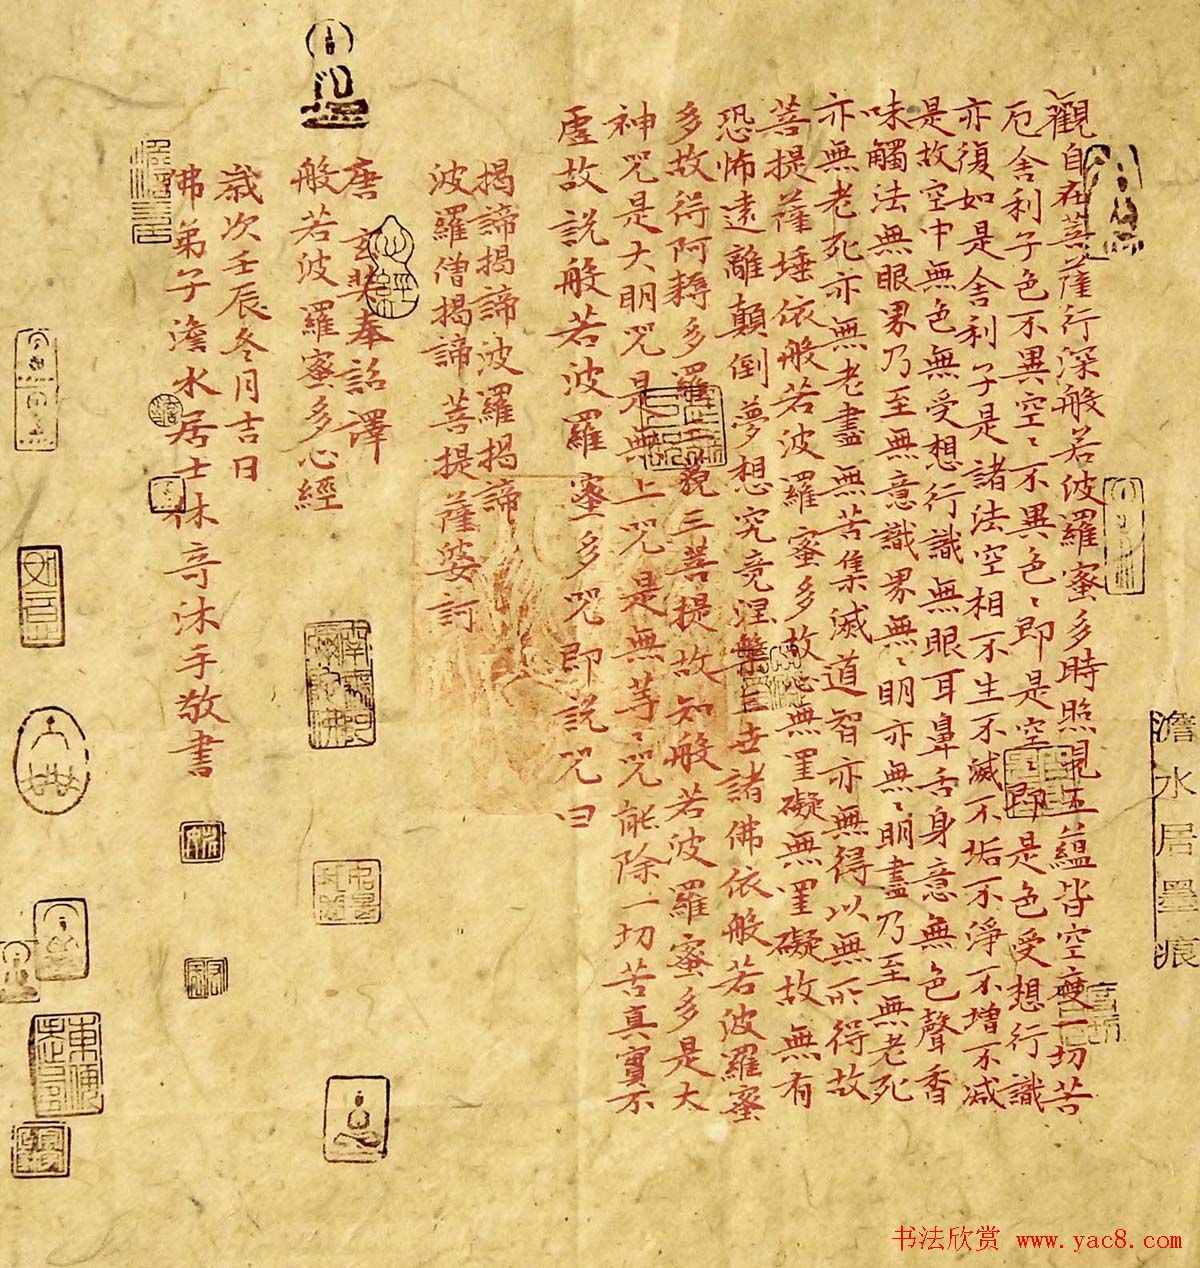 澹水居墨痕
觀自在菩薩行深般若波羅蜜多時照見五蘊皆空度一切苦
厄舍利子色不異空〻不異色〻即是空〻即是色受想行識
亦復如是舍利子是諸法空相不生不滅不垢不淨不增不減
是故空中無色無受想行識無眼耳鼻舌身意無色聲香
味觸法無眼界乃至無意識界無〻明亦無〻明盡乃至無老死
亦無老死亦無老盡無苦集滅道智亦無得以無所得故
菩提薩埵依般若波羅蜜多故心無罣礙無罣礙故無有
恐怖遠離顛倒夢想究竟涅槃三世諸佛依般若波羅蜜
多故得阿耨多羅三藐三菩提故知般若波羅蜜多是大
神咒是大明咒是無上咒是無等〻咒能除一切苦真實不
虛故說般若波羅蜜多咒即說咒曰
揭諦揭諦波羅揭諦
波羅僧揭諦菩提薩婆訶
唐玄奘奉詔譯
心經
般若波羅蜜多心經
歲次壬辰冬月吉日
佛弟子澹水居士林奇沐手敬書
书法欣赏 www.yac8.com